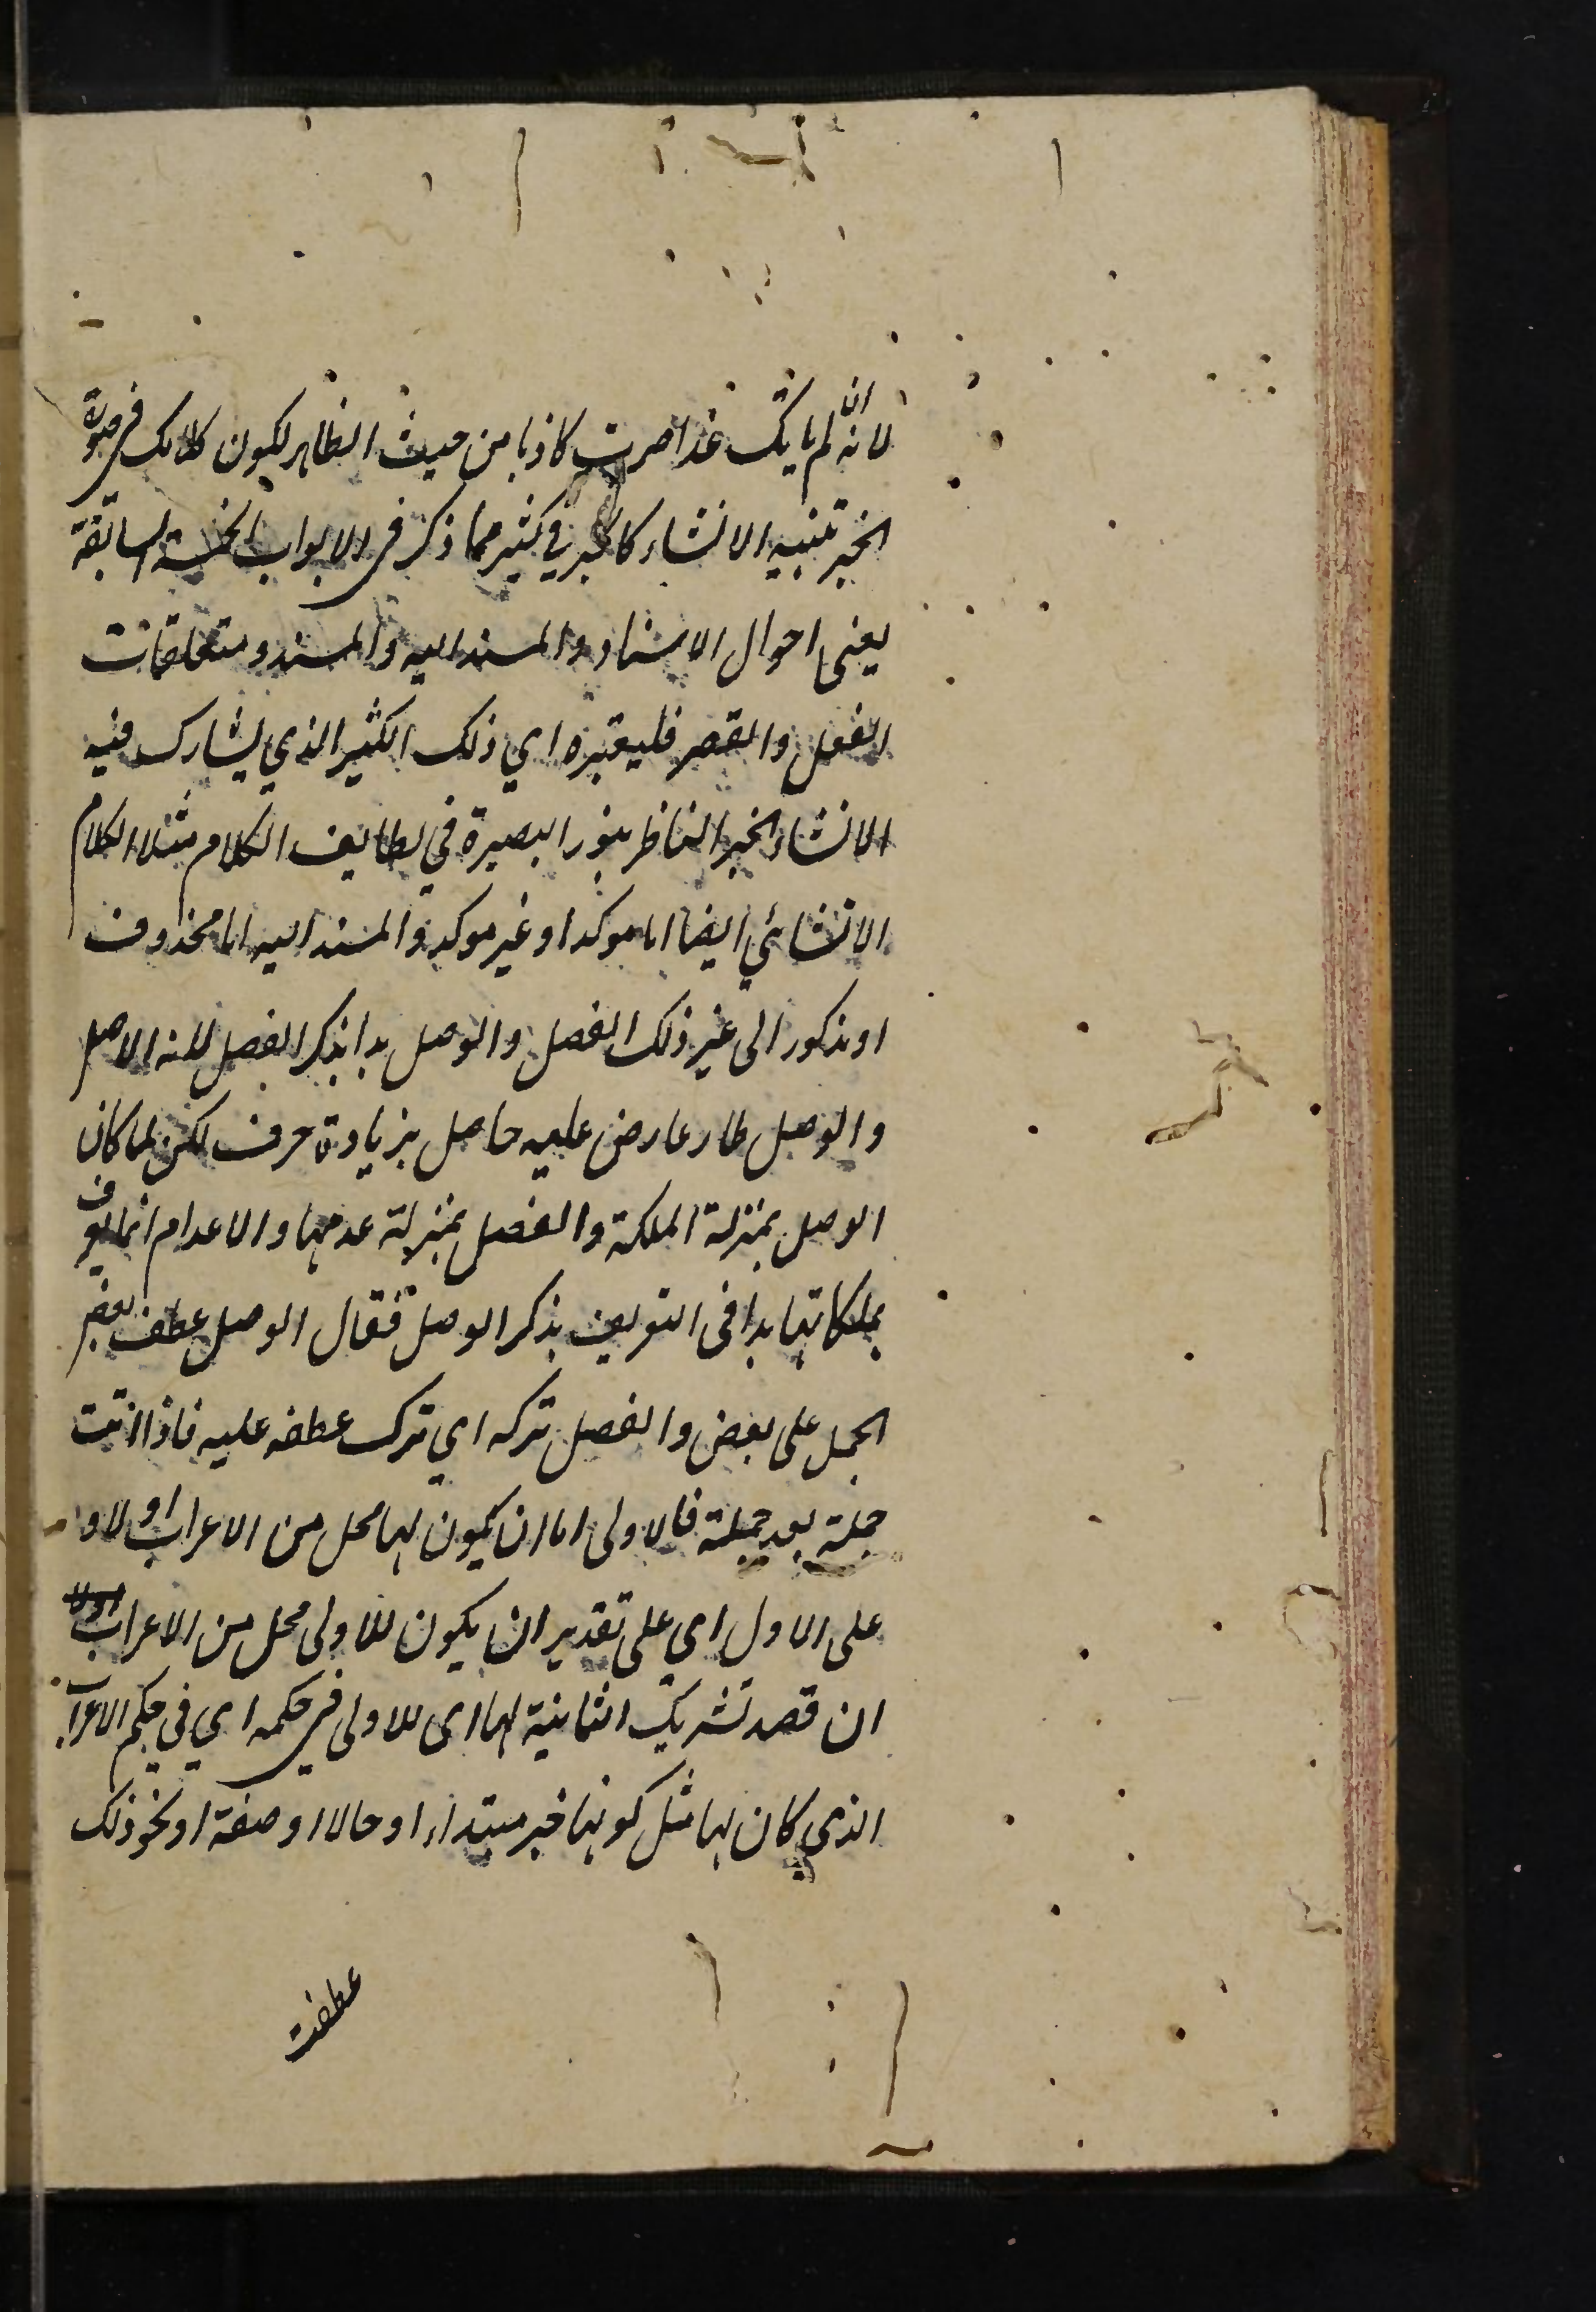 لانه ان لم ياتك غدا صرت كاذبا من حيث الظاهر لكون كلامك في صورة
الخبر تنبيه الانشاء كالخبر في كثير مما ذكر في الابواب الخمسة السابقة
يعني احوال الاسناد والمسند اليه والمسند ومتعلقات
الفعل والقصر فليعتبره اي ذلك الكثير الذي يشارك فيه
الانشاء الخبر الناظر بنور البصيرة في لطايف الكلام مثلا الكلام
الانشائي ايضا اما موكد او غير موكد والمسند اليه اما محذوف
او مذكور الى غير ذلك الفصل والوصل بدا بذكر الفصل لانه الاصل
والوصل طار عارض عليه حاصل بزيادة حرف لكن لما كان
الوصل بمنزلة الملكة والفصل بمنزلة عدمها والاعدام انما يعرف
بملكاتها بدا في التعريف بذكر الوصل فقال الوصل عطف بعض
الجمل على بعض والفصل تركه اي ترك عطفه عليه فاذا اتت
جملة بعد جملة فالاولى اما ان يكون لها محل من الاعراب او لا و
على الاول اي على تقدير ان يكون للاولى محل من الاعراب اولا
ان قصد تشريك الثانية لها اى للاولى في حكمه اي في حكم الاعراب
الذي كان لها مثل كونها خبر مبتداء او حالا او صفة او نحو ذلك
عطفت